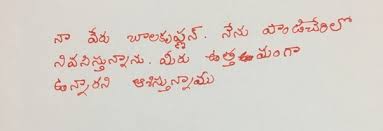 నా పేరు బాలకృష్ణన్. నేను పాండిచేరిలో
నివసిస్తున్నాను. మీరు ఉత్తమంగా
ఉన్నారని ఆశిస్తున్నాము